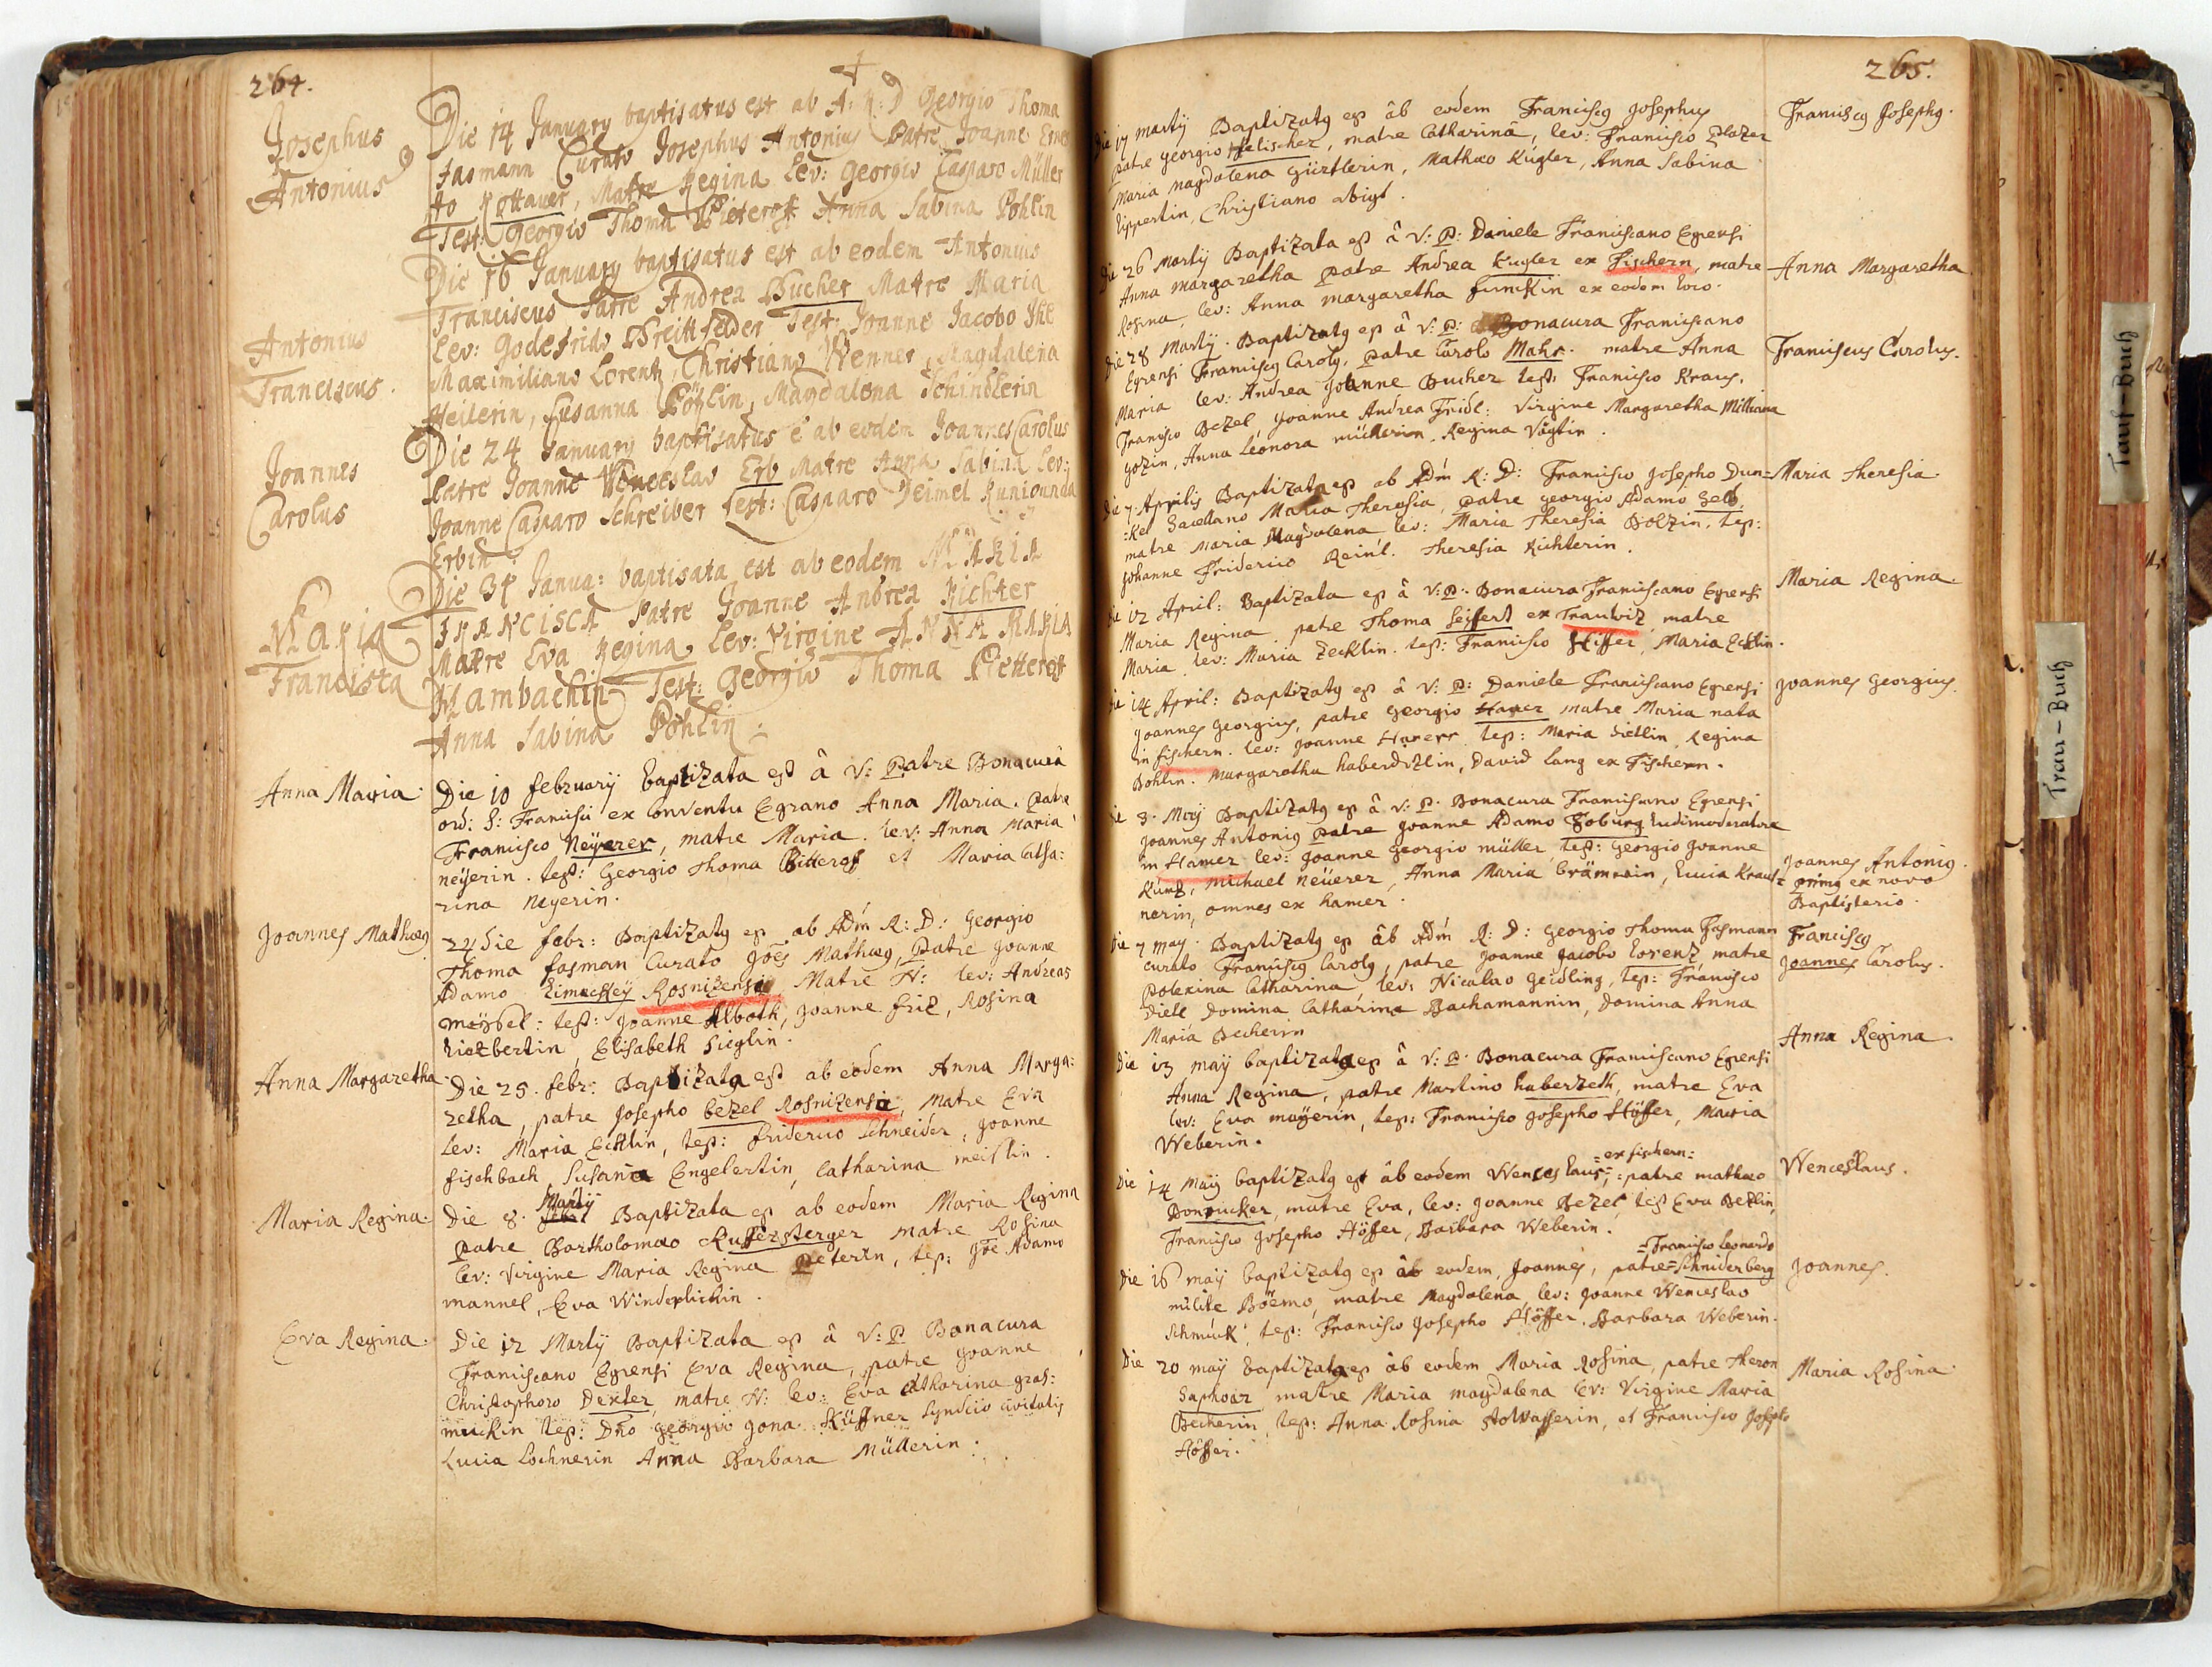 264.
Josephus
Antonius
Die 14 January baptisatus est ab A: R: D Georgio Thoma
Fasmann Curato Josephus Antonius Patre Joanne Ernes
to Kottauer, Matre Regina Lev: Georgio Casparo Müller
Test: Georgio Thoma Pieterof Anna Sabina Pohlin
Antonius
Franciscus.
Die 16 January baptisatus est ab eodem Antonius
Franciscus Patre Andrea Bucher Matre Maria
Lev: Godefrido Breitfelder Test: Joanne Jacobo
Maximiliano Lorentz, Christiano Wenner, Magdalena
Heilerin, Susanna Pöylin, Magdalena Schindlerin
Joannes
Carolus
Die 24 January baptisatus e ab eodem Joannes Carolus
Patre Joanne Wenceslao Erb Matre Anna Sabina Lev:
Joanne Casparo Schreiber Test: Casparo Deimel Kunigunda
Erbin
Maria
Francisca
Die 31 Janua: baptisata est ab eodem MARIA
FRANCISCA Patre Joanne Andrea Richter
Matre Eva Regina Lev: Virgine ANNA MARIA
Mambachin Test: Georgio Thoma Petterof
Anna Sabina Pohlin
Anna Maria.
Die 10 february baptizata est â V: Patre Bonacura
ord: S: Francisci ex Conventu Egrano Anna Maria. Patre
Francisco Neyerer, matre Maria. lev: Anna Maria
neyerin. test: Georgio Thoma Bitterof et Maria Catha:
rina Neyerin.
Joannes Mathaeg
24 die febr: Baptizatg est ab Adm R: D: Georgio
Thoma fasman Curato Joes Mathaeg, Patre Joanne
Adamo Rosnizensi Matre N: lev: Andreas
meyssel: test: Joanne Alboth, Joanne friz, Rosina
Elisabeth Sieglin.
Anna Margaretha
Die 25. febr: Baptizata est ab eodem Anna Marga:
retha, patre Josepho Bezel Rosnizensi, Matre Eva
Lev: Maria Ecklin, test: friderico Schneider, Joanne
fischbach, Susana Engelertin, Catharina meislin.
Maria Regina.
Die 8. Martij Baptizata est ab eodem Maria Regina
Patre Bartholomaeo Ruffersterger matre Rosina
lev: Virgine Maria Regina Peterin, test: Joe Adamo
mannel, Eva Winderlichin.
Eva Regina.
Die 12 Martij Baptizata est â V: P Bonacura
Franciscano Egrensi Eva Regina, patre Joanne
Christophoro Dexler, matre N: lev: Eva Catharina gras:
muckin test: Dno Georgio Jona Küffner Syndico civitatis
Lucia Lochnerin Anna Barbara Müllerin.
265.
Die 17 martij Baptizatg est âb eodem Franciscg Josephus
Franciscg Josephg.
patre Georgio felischer, matre Catharinâ, lev: Francisco Plazer
Maria magdalena Gürtlerin, Mathaeo Kugler, Anna Sabina
Lippertin, Christiano Voigt.
Die 26 Martij Baptizata est â V: P: Daniele Franciscano Egrensi
Anna Margaretha
Anna margaretha Patre Andrea Kugler ex Fischern, matre
Rosina, lev: Anna margaretha funckin ex eodem loco.
Die 28 Martij. Baptizatg est â V: P: Bonacura Franciscano
Egrensi Franciscg Carolg, Patre Carolo Mahr. matre Anna
Franciscus Carolus.
Maria lev: Andrea Joanne Bucher test: Francisco Kraus,
Francisco Bezel, Joanne Andrea Fridl: Virgine Margaretha Milliana
Gözin, Anna Leonora müllerin, Regina Vögtin.
Die 7 Aprilis Baptizata est ab Adm R: D: Francisco Josepho Dun=
Maria Theresia.
=kel Sacellano Maria Theresia, patre Georgio Adamo Selb,
matre Maria Magdalena lev: Maria Theresia Bolzin, test:
Johanne Friderico Reinl. Theresia Richterin.
Die 12 April: Baptizata est â V: P: Bonacura Franciscano Egrensi
Maria Regina.
Maria Regina patre Thoma Seiffert ex Trautwiz matre
Maria lev: Maria Zecklin. test: Francisco Höffer, Maria Ecklin.
Die 14 April: Baptizatg est â V: P: Daniele Franciscano Egrensi
Joannes Georgius.
Joannes Georgius, patre Georgio Haver matre Maria nata
in fischern. lev: Joanne Haverr test: Maria Dietlin Regina
Bohlin. Margaretha haberdizlin, David lang ex Fischern.
Die 3. May Baptizatg est â V: P. Bonacura Franciscano Egrensi
Joannes Antonig Patre Joanne Adamo Foburg Ludimoderatore
in Hamer lev: Joanne Georgio müller test: Georgio Joanne
Joannes Antonig.
primg ex novo
Baptisterio.
Kunz, Michael Neüerer, Anna Maria Crämerin, Lucia Kraus=
nerin, omnes ex hamer.
Die 7 may. Baptizatg est âb Adm R: D: Georgio Thoma Fasmann
Franciscg
Joannes Carolus.
Curato Franciscg Carolg, patre Joanne Jacobo Lorenz matre
Polexina Catharina lev: Nicolao Geidling, test: Francisco
Diell Domina Catharina Bachamannin, Domina Anna
Maria Becherin
Anna Regina.
Die 13 maij baptizata est â V: P. Bonacura Franciscano Egrensi
Anna Regina, patre Martino haberzeth, matre Eva
lev: Eva mayerin, test: Francisco Josepho Höffer, Maria
Weberin.
=ex fischern=
Die 14 Maij baptizatg est âb eodem Wenceslaus, patre mathaeo
Wenceslaus.
Donrucker, matre Eva, lev: Joanne Bezel test Eva Bezlin,
Francisco Josepho Höffer, Barbara Weberin.
=Francisco Leonardo
Die 16 maij baptizatg est âb eodem, Joannes, patre=Schniderberg
Joannes.
milite Böemo, matre Magdalena lev: Joanne Wenceslao
Schmuck, test: Francisco Josepho Höffer, Barbara Weberin.
Die 20 maij baptizata est âb eodem Maria Rosina, patre Theron
Maria Rosina.
Saphoir matre Maria magdalena lev: Virgine Maria
Becherin, test: Anna Rosina Stowasserin, et Francisco Josepho
Höffer.
Tauf-Buch
Trau-Buch